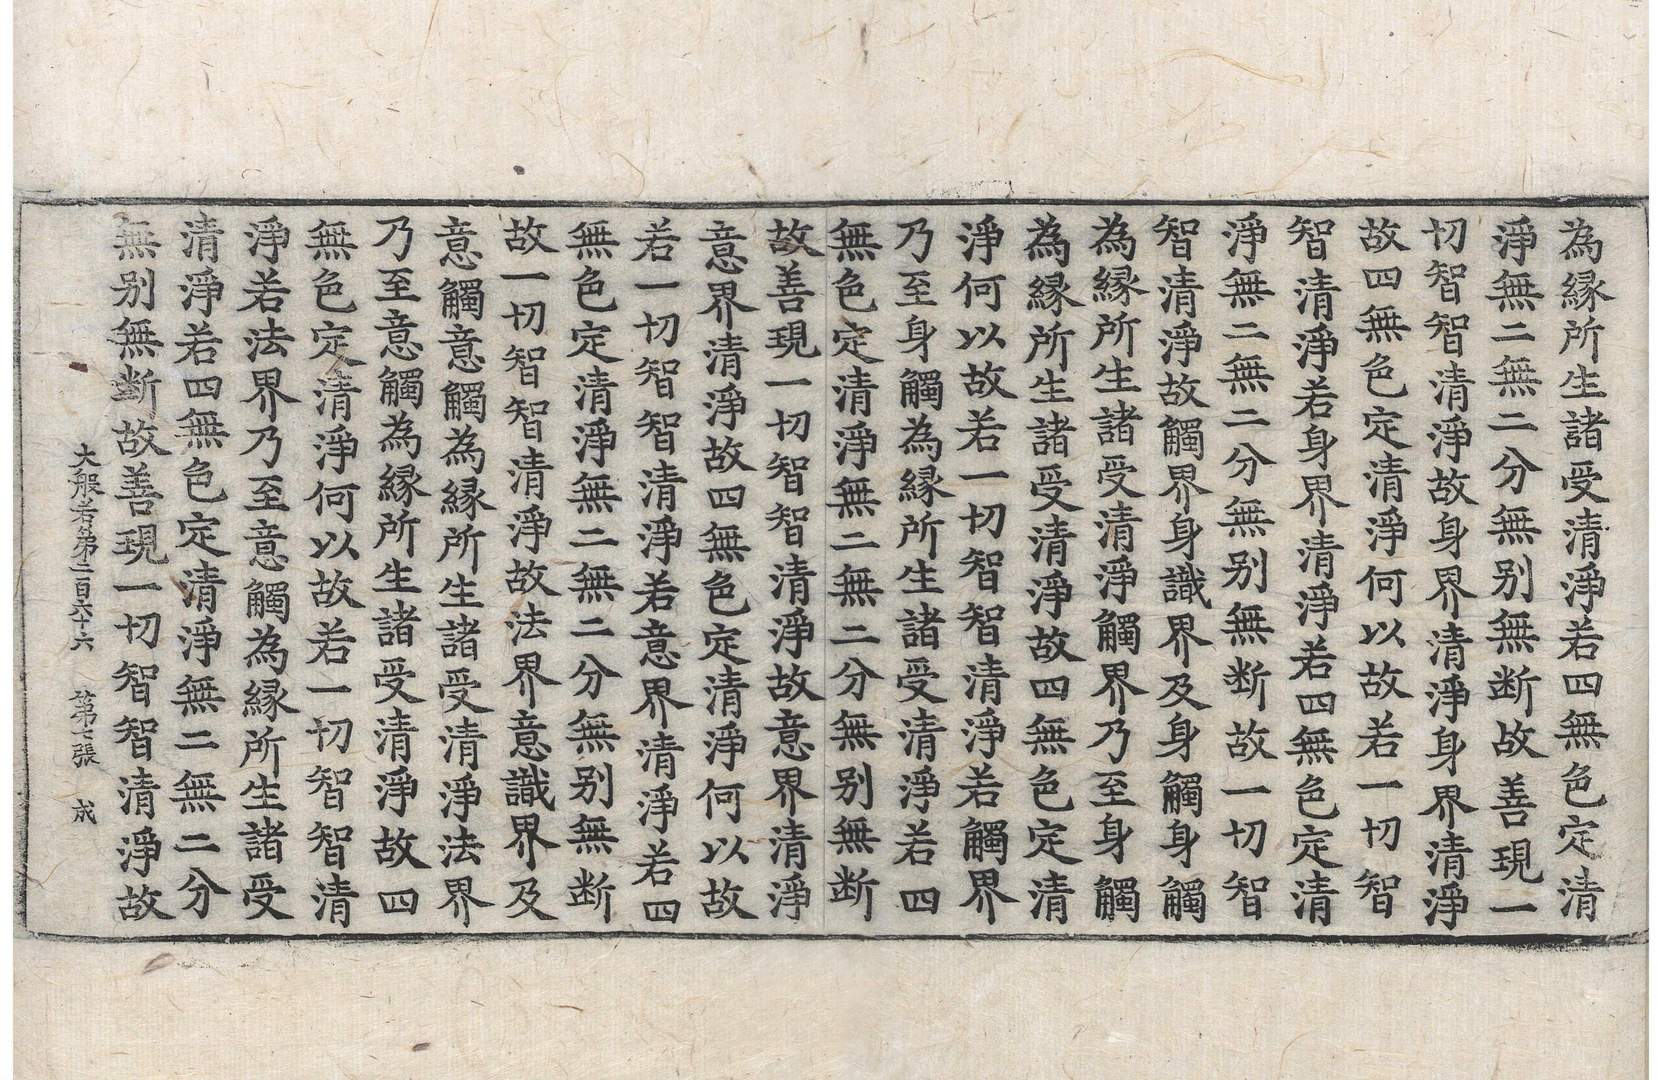 為縁所生諸受清淨若四無色定清
淨無二無二分無别無断故善現一
切智智清淨故身界清淨身界清淨
故四無色定清淨何以故若一切智
智清淨若身界清淨若四無色定清
淨無二無二分無别無断故一切智
智清淨故觸界身識界及身觸身觸
為縁所生諸受清淨觸界乃至身觸
為縁所生諸受清淨故四無色定清
淨何以故若一切智智清淨若觸界
乃至身觸為縁所生諸受清淨若四
無色定清淨無二無二分無别無断
故善現一切智智清淨故意界清淨
意界清淨故四無色定清淨何以故
若一切智智清淨若意界清淨若四
無色定清淨無二無二分無别無断
故一切智智清淨故法界意識界及
意觸意觸為縁所生諸受清淨法界
乃至意觸為縁所生諸受清淨故四
無色定清淨何以故若一切智智清
淨若法界乃至意觸為縁所生諸受
清淨若四無色定清淨無二無二分
無别無断故善現一切智智清淨故
大般若第二百六十六 第七張 成